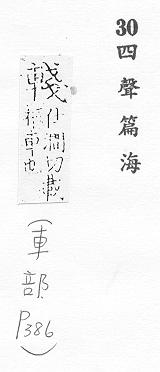 30 四聲篇海
輚 仕澗切載
柩車也
(車部 P386)